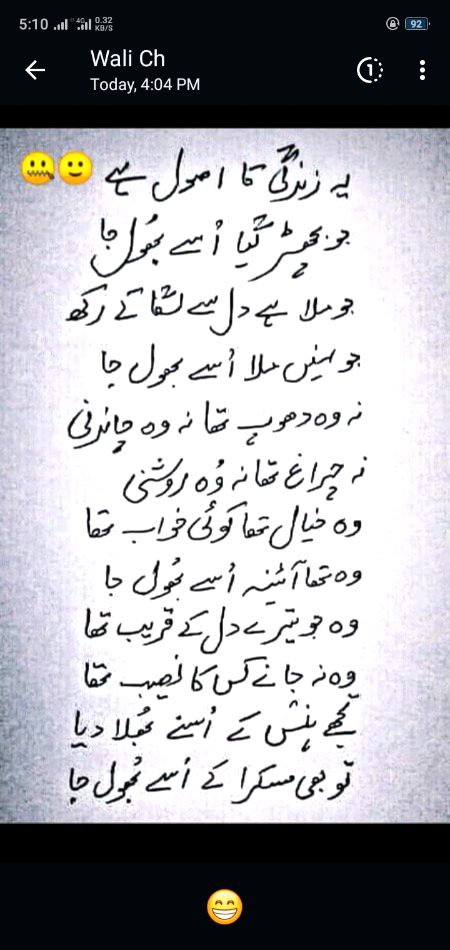 5:10 4G 0.32 KB/S 92
Wali Ch
Today, 4:04 PM
یہ زندگی کا اصول ہے 🙂🤐
جو بچھڑ گیا اُسے بھول جا
جو ملا ہے دل سے لگا کے رکھ
جو نہیں ملا اُسے بھول جا
نہ وہ دھوپ تھا نہ وہ چاندنی
نہ چراغ تھا نہ وُہ روشنی
وہ خیال تھا کوئی خواب تھا
وہ تھا آئینہ اُسے بھول جا
وہ جو تیرے دل کے قریب تھا
وہ نہ جانے کس کا نصیب تھا
تجھے ہنس کے اُسنے بھُلا دیا
تو بھی مسکرا کے اُسے بھُول جا
😁